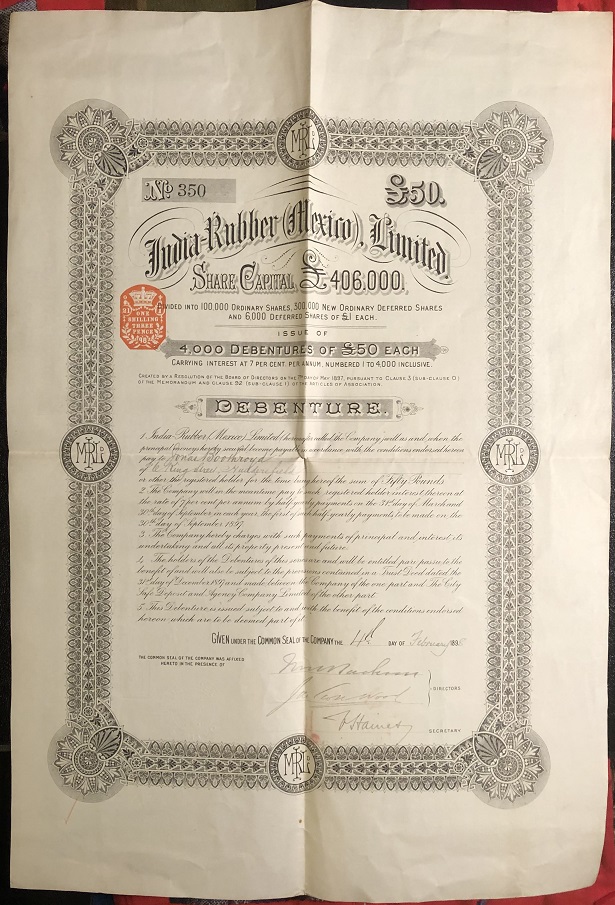 No 350
£50.
India-Rubber (Mexico), Limited.
SHARE CAPITAL £406.000.
DIVIDED INTO 100.000 ORDINARY SHARES, 300,000 NEW ORDINARY DEFERRED SHARES
AND 6,000 DEFERRED SHARES OF £1 EACH.
ONE
SHILLING
THREE
PENCE
ISSUE OF
4,000 DEBENTURES OF £50 EACH
CARRYING INTEREST AT 7 PER CENT. PER ANNUM, NUMBERED 1 TO 4,000 INCLUSIVE.
CREATED BY A RESOLUTION OF THE BOARD OF DIRECTORS ON THE 7th DAY OF MAY 1897, PURSUANT TO CLAUSE 3 (SUB-CLAUSE O)
OF THE MEMORANDUM AND CLAUSE 92 (SUB-CLAUSE 1) OF THE ARTICLES OF ASSOCIATION.
DEBENTURE.
1. India-Rubber (Mexico) Limited (hereinafter called the Company) will as and when the
principal moneys hereby secured become payable in accordance with the conditions endorsed hereon
pay to Boothroyd
of King Street
or other the registered holder for the time being hereof the sum of Fifty Pounds
2. The Company will in the meantime pay to such registered holder interest thereon at
the rate of 7 per cent per annum by half yearly payments on the 31st day of March and
30th day of September in each year, the first of such half-yearly payments to be made on the
30th day of September 1897.
3. The Company hereby charges with such payments of principal and interest its
undertaking and all its property present and future
4. The holders of the Debentures of this issue are and will be entitled pari passu to the
benefit of and will also be subject to the provisions contained in a Trust Deed dated the
day of December 1897 and made between the Company of the one part and The City
Safe Deposit and Agency Company Limited of the other part
5. This Debenture is issued subject to and with the benefit of the conditions endorsed
hereon which are to be deemed part of it
GIVEN UNDER THE COMMON SEAL OF THE COMPANY THE 4th DAY OF February 189
THE COMMON SEAL OF THE COMPANY WAS AFFIXED
HERETO IN THE PRESENCE OF
Wood
DIRECTORS
Haines
SECRETARY